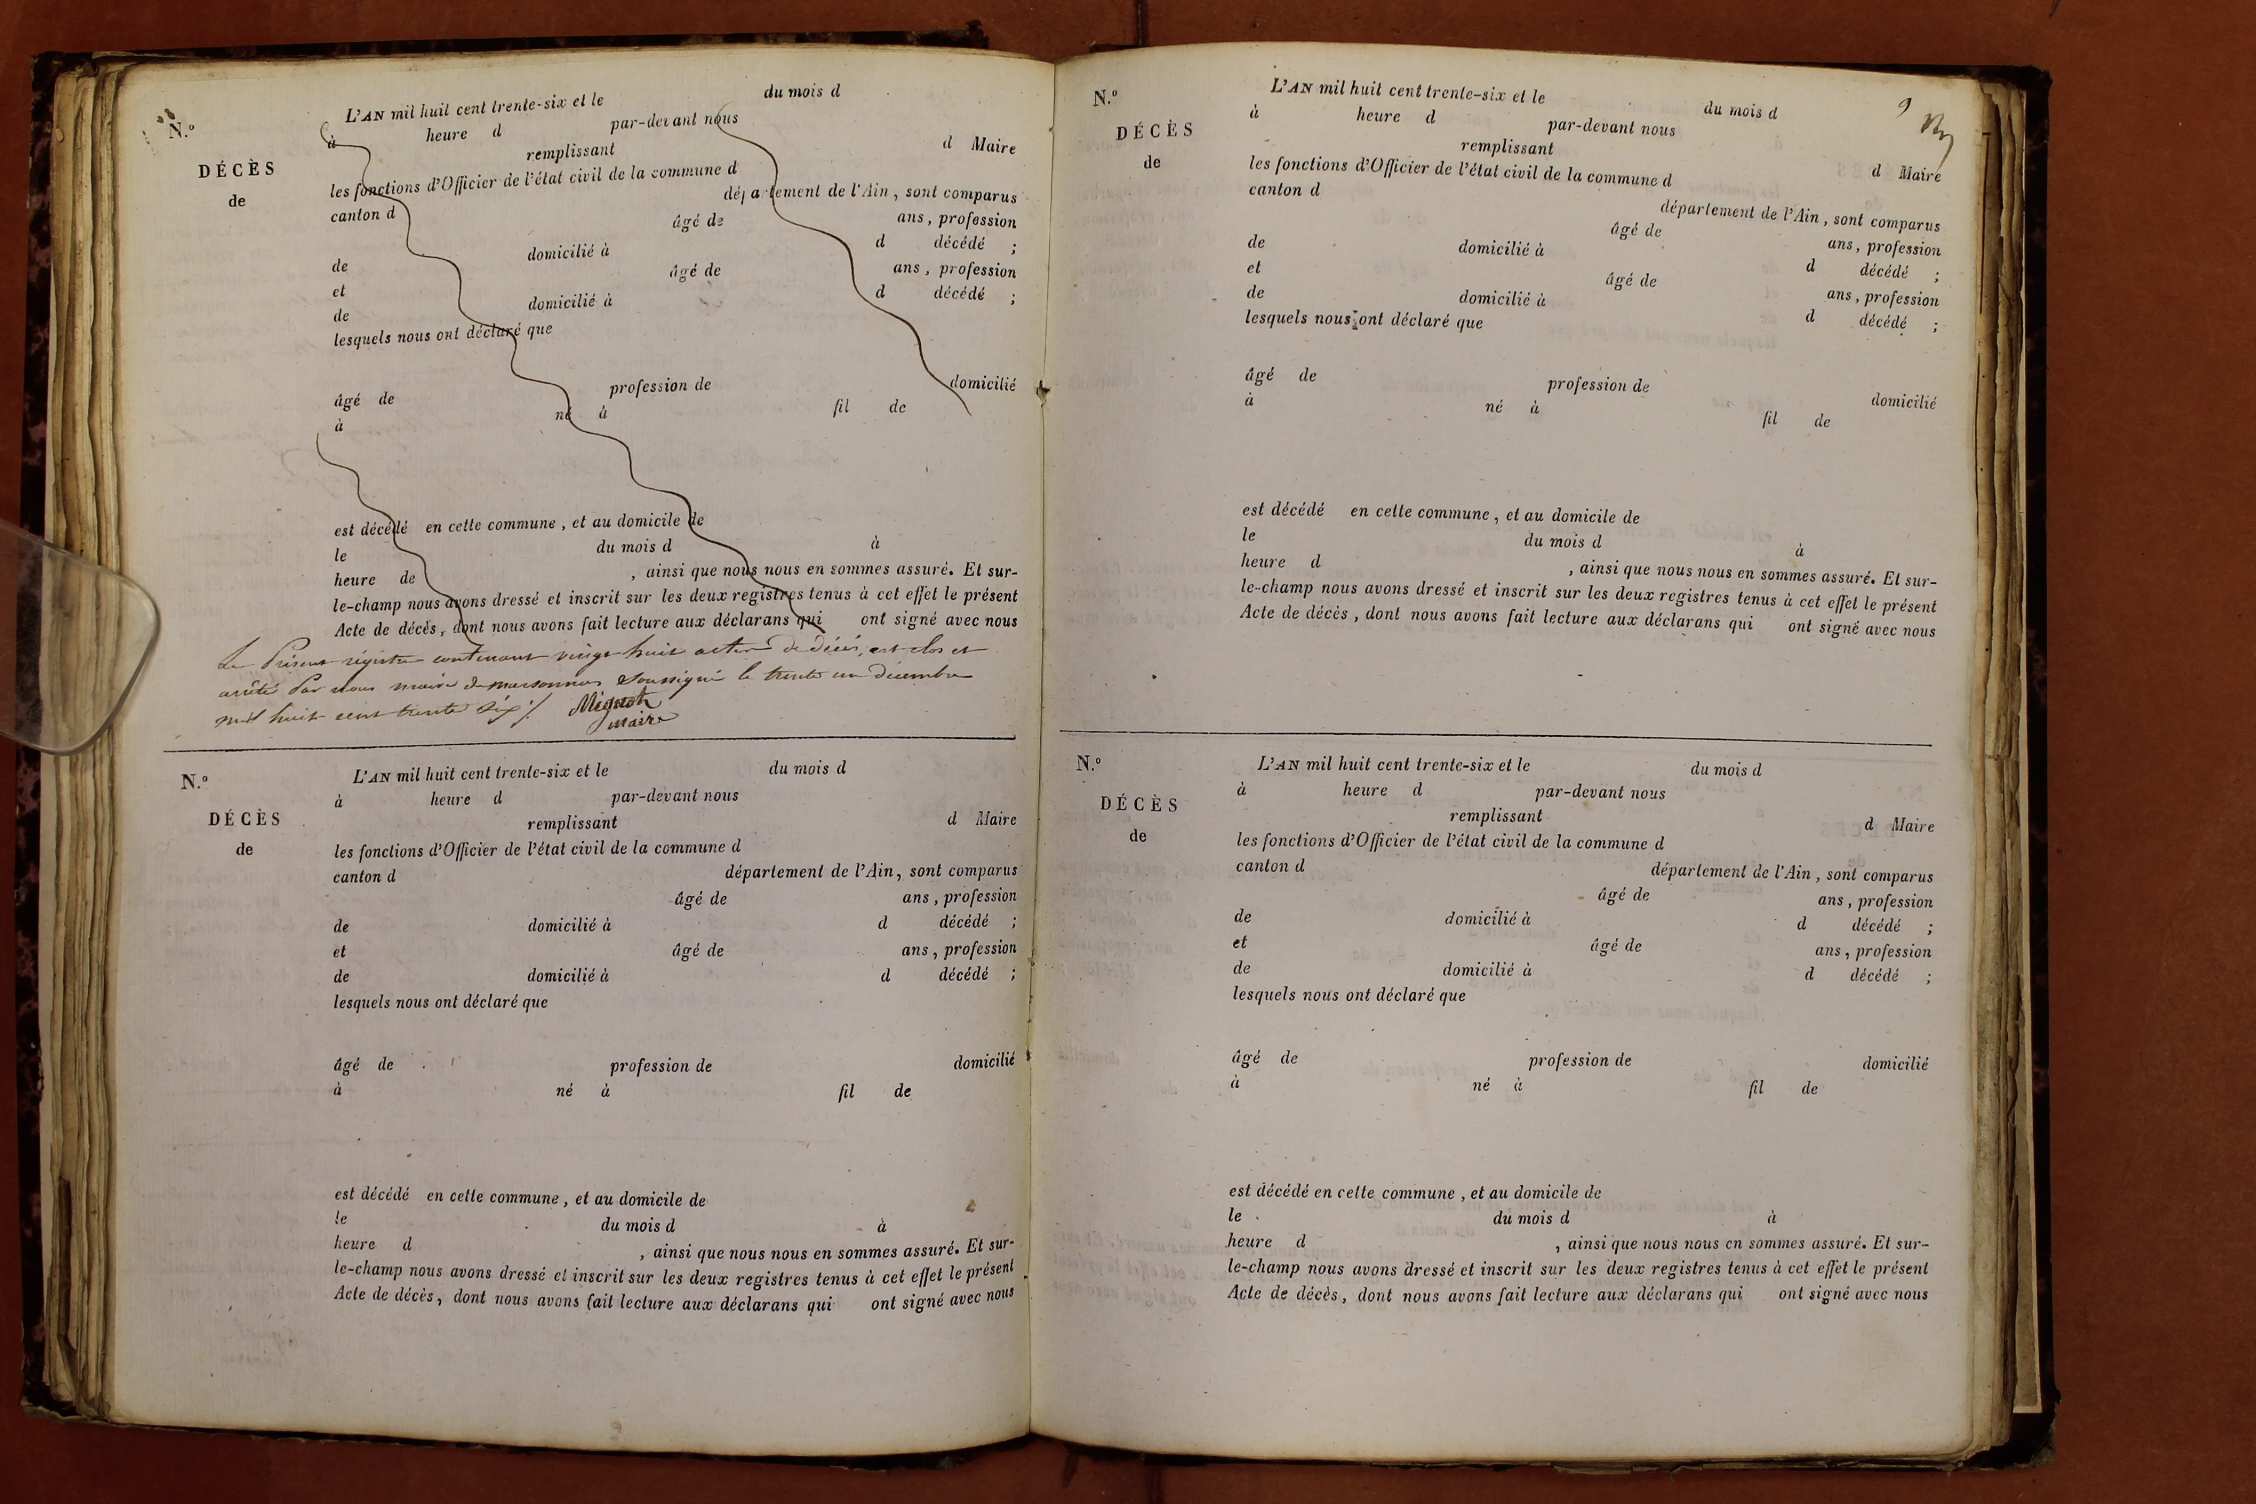 N.º
DÉCÈS
de
L'AN mil huit cent trente-six et le du mois d
à heure d par-devant nous
remplissant d Maire
les fonctions d'Officier de l'état civil de la commune d
canton d département de l'Ain, sont comparus
âgé de ans, profession
de domicilié à d décédé ;
et âgé de ans, profession
de domicilié à d décédé ;
lesquels nous ont déclaré que
âgé de profession de domicilié
à né à fil de
est décédé en cette commune, et au domicile de
le du mois d à
heure de , ainsi que nous nous en sommes assuré. Et sur-
le-champ nous avons dressé et inscrit sur les deux registres tenus à cet effet le présent
Acte de décès, dont nous avons fait lecture aux déclarans qui ont signé avec nous
Le Présent régistre contenant vingt huit actes de décès, est clos et
arrêté Par nous maire de marsonnas Soussigné le trente un décembre
mil huit cent trente six ./.
Mignot
maire
N.º
DÉCÈS
de
L'AN mil huit cent trente-six et le du mois d
à heure d par-devant nous
remplissant d Maire
les fonctions d'Officier de l'état civil de la commune d
canton d département de l'Ain, sont comparus
âgé de ans, profession
de domicilié à d décédé ;
et âgé de ans, profession
de domicilié à d décédé ;
lesquels nous ont déclaré que
âgé de profession de domicilié
à né à fil de
est décédé en cette commune, et au domicile de
le du mois d à
heure d , ainsi que nous nous en sommes assuré. Et sur-
le-champ nous avons dressé et inscrit sur les deux registres tenus à cet effet le présent
Acte de décès, dont nous avons fait lecture aux déclarans qui ont signé avec nous
9
N.º
DÉCÈS
de
L'AN mil huit cent trente-six et le du mois d
à heure d par-devant nous
remplissant d Maire
les fonctions d'Officier de l'état civil de la commune d
canton d département de l'Ain, sont comparus
âgé de ans, profession
de domicilié à d décédé ;
et âgé de ans, profession
de domicilié à d décédé ;
lesquels nous ont déclaré que
âgé de profession de domicilié
à né à fil de
est décédé en cette commune, et au domicile de
le du mois d à
heure d , ainsi que nous nous en sommes assuré. Et sur-
le-champ nous avons dressé et inscrit sur les deux registres tenus à cet effet le présent
Acte de décès, dont nous avons fait lecture aux déclarans qui ont signé avec nous
N.º
DÉCÈS
de
L'AN mil huit cent trente-six et le du mois d
à heure d par-devant nous
remplissant d Maire
les fonctions d'Officier de l'état civil de la commune d
canton d département de l'Ain, sont comparus
âgé de ans, profession
de domicilié à d décédé ;
et âgé de ans, profession
de domicilié à d décédé ;
lesquels nous ont déclaré que
âgé de profession de domicilié
à né à fil de
est décédé en cette commune, et au domicile de
le du mois d à
heure d , ainsi que nous nous en sommes assuré. Et sur-
le-champ nous avons dressé et inscrit sur les deux registres tenus à cet effet le présent
Acte de décès, dont nous avons fait lecture aux déclarans qui ont signé avec nous